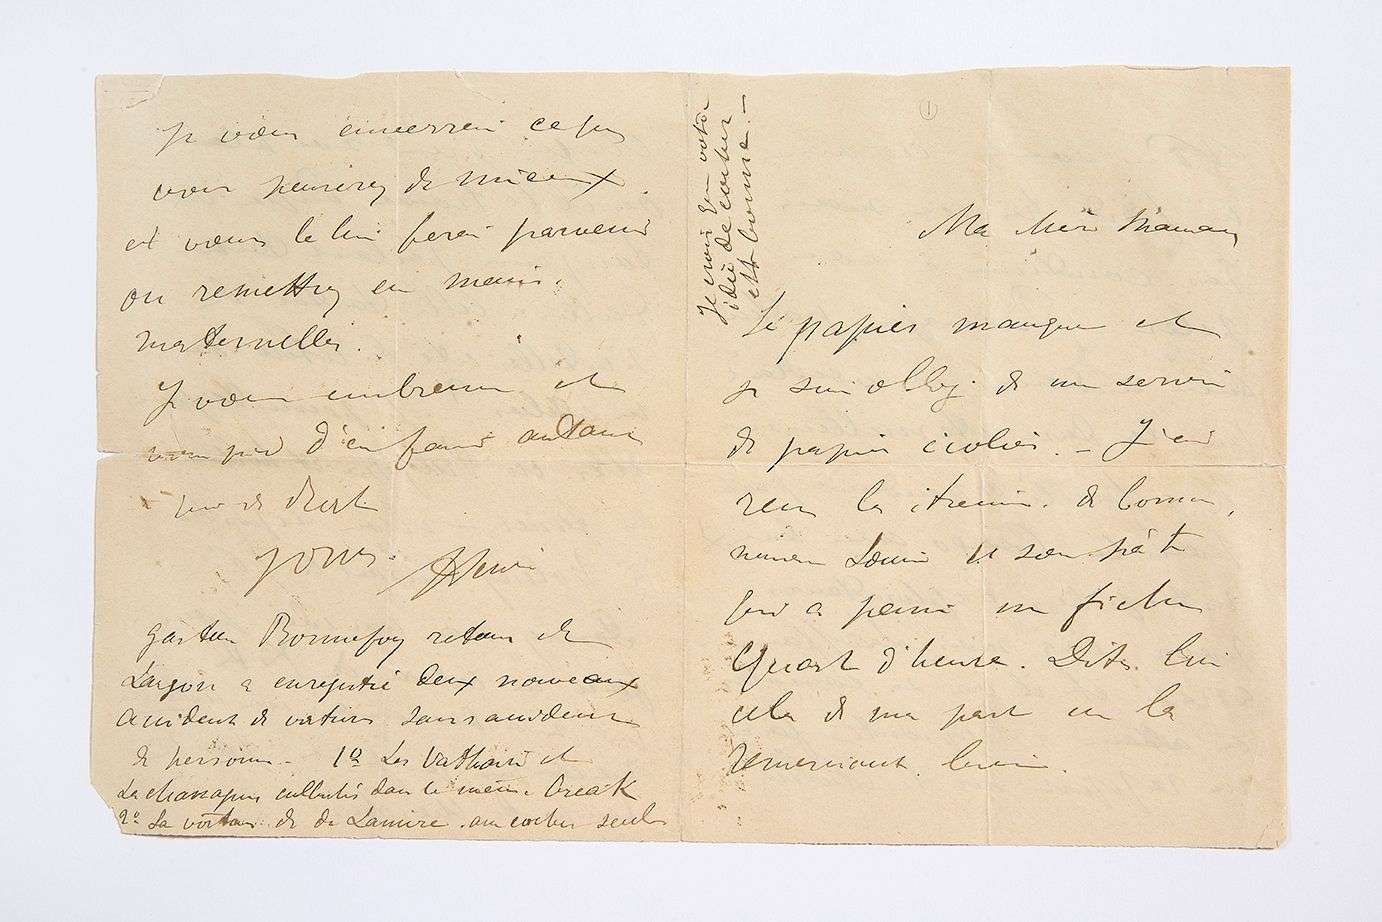 Ma chère Maman
Le papier manque et
je suis obligé de me servir
de papier écolier. – J'ai
reçu les étrennes de bonne
maman Louis et son pâté
fera à peine un fichu
quart d'heure. Dites lui
cela de ma part en la
remerciant bien.
Je crois que votre
idée de cocher
est bonne. –
Je vous
vous penserez de mieux
et vous le lui ferez parvenir
ou remettrez en mains
maternelles.
Je vous embrasse et
vous prie d'en faire autant
de droit
yours. Henri
Gaston Bonnefoy retour de
Langon a enregistré deux nouveaux
accidents de voitures sans accidents
de personne. 1º Les et
culbutés dans le même break
2º La voiture de de Lamire au cocher seul
1